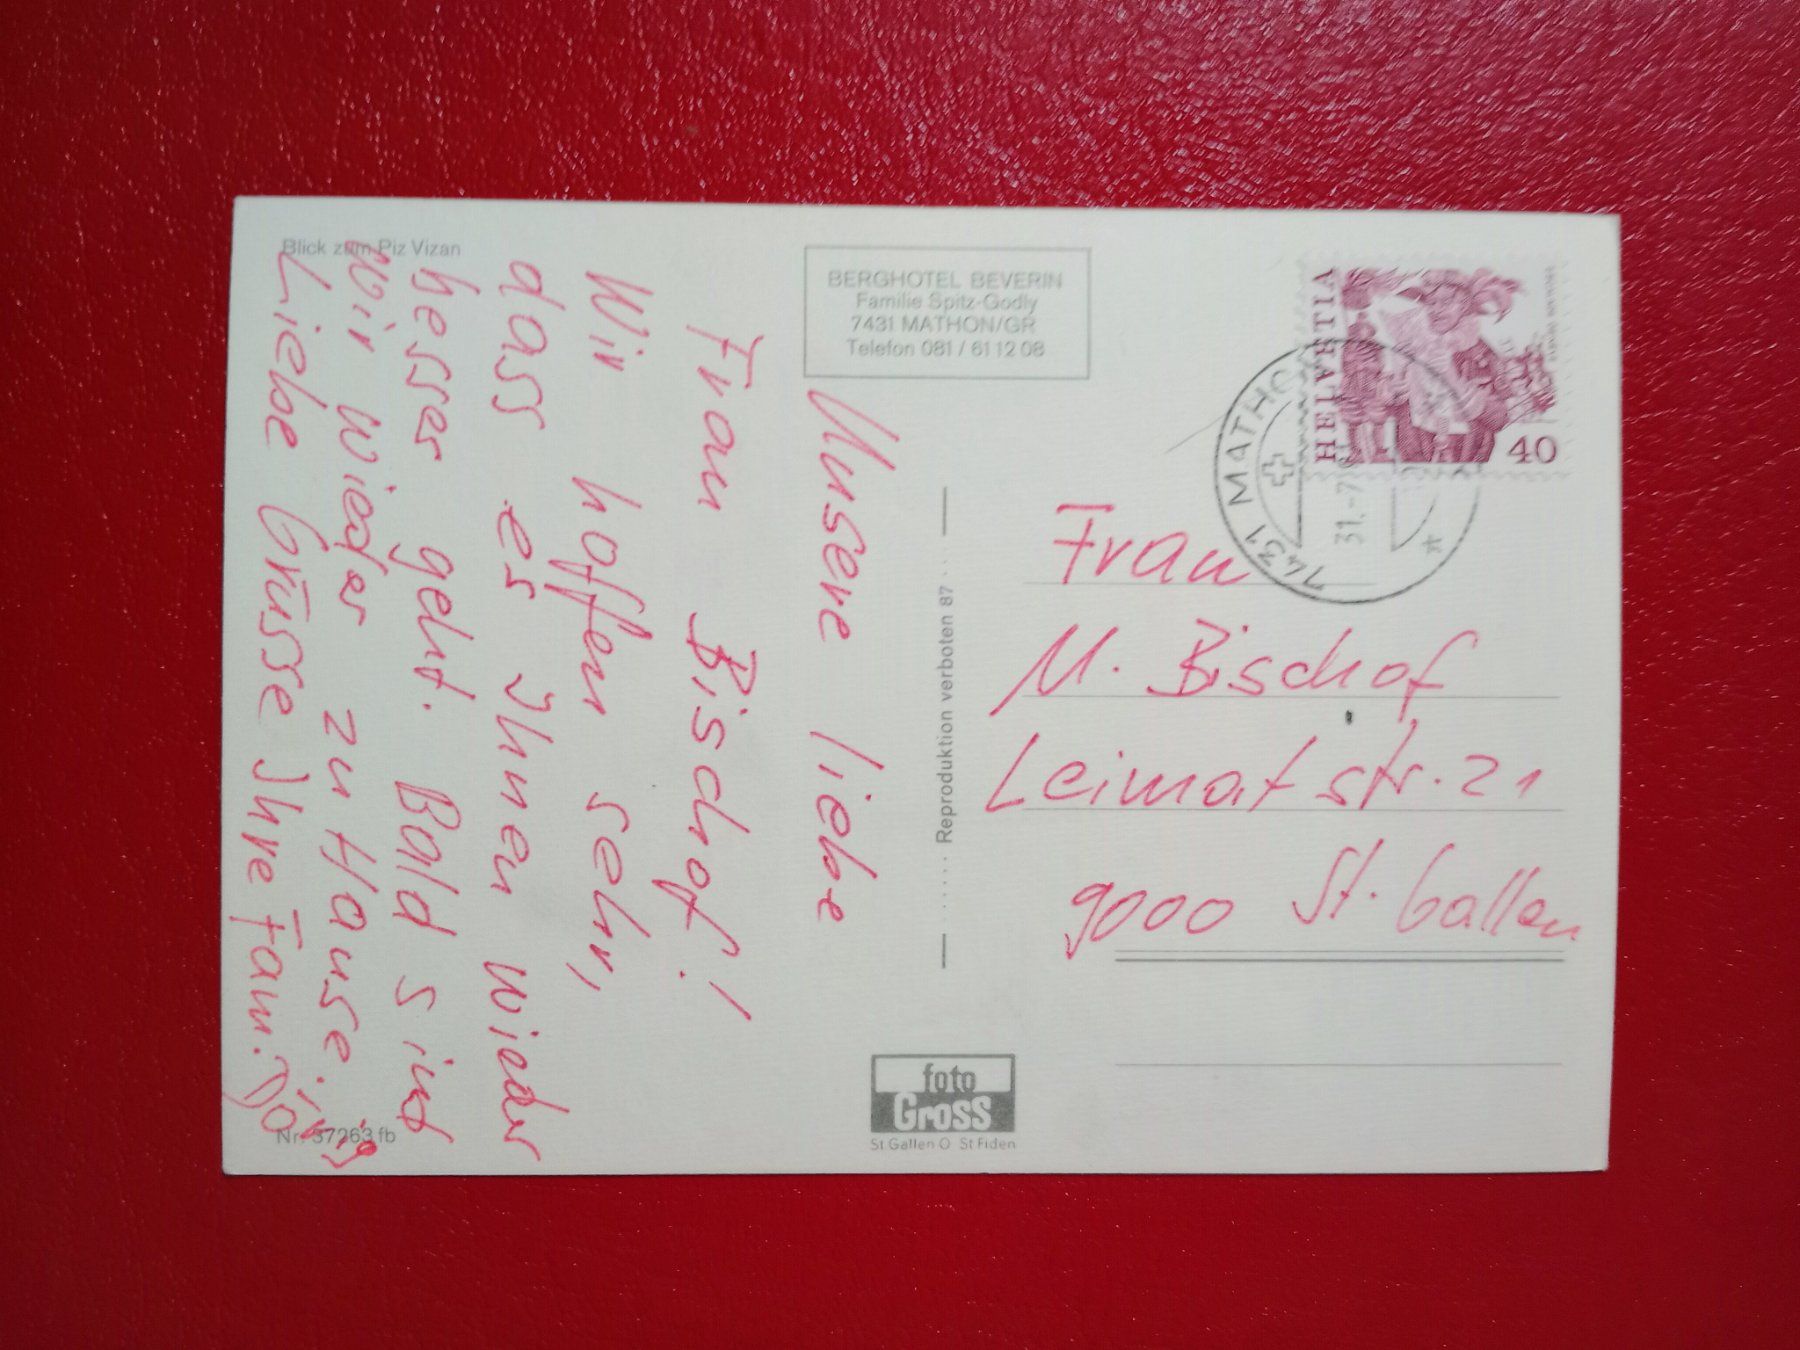 Blick zum Piz Vizan
BERGHOTEL BEVERIN
Familie Spitz-Godly
7431 MATHON/GR
Telefon 081 / 61 12 08
Unsere liebe
Frau Bischof!
Wir hoffen sehr,
dass es Ihnen wieder
besser geht. Bald sind
wir wieder zu Hause.
Liebe Grüsse Ihre Fam.
Nr. 37263 fb
Reproduktion verboten 87
foto
Gross
St Gallen O St Fiden
HELVETIA
40
7431 MATHO
31.-7
Frau
M. Bischof
Leimatstr. 21
9000 St. Gallen